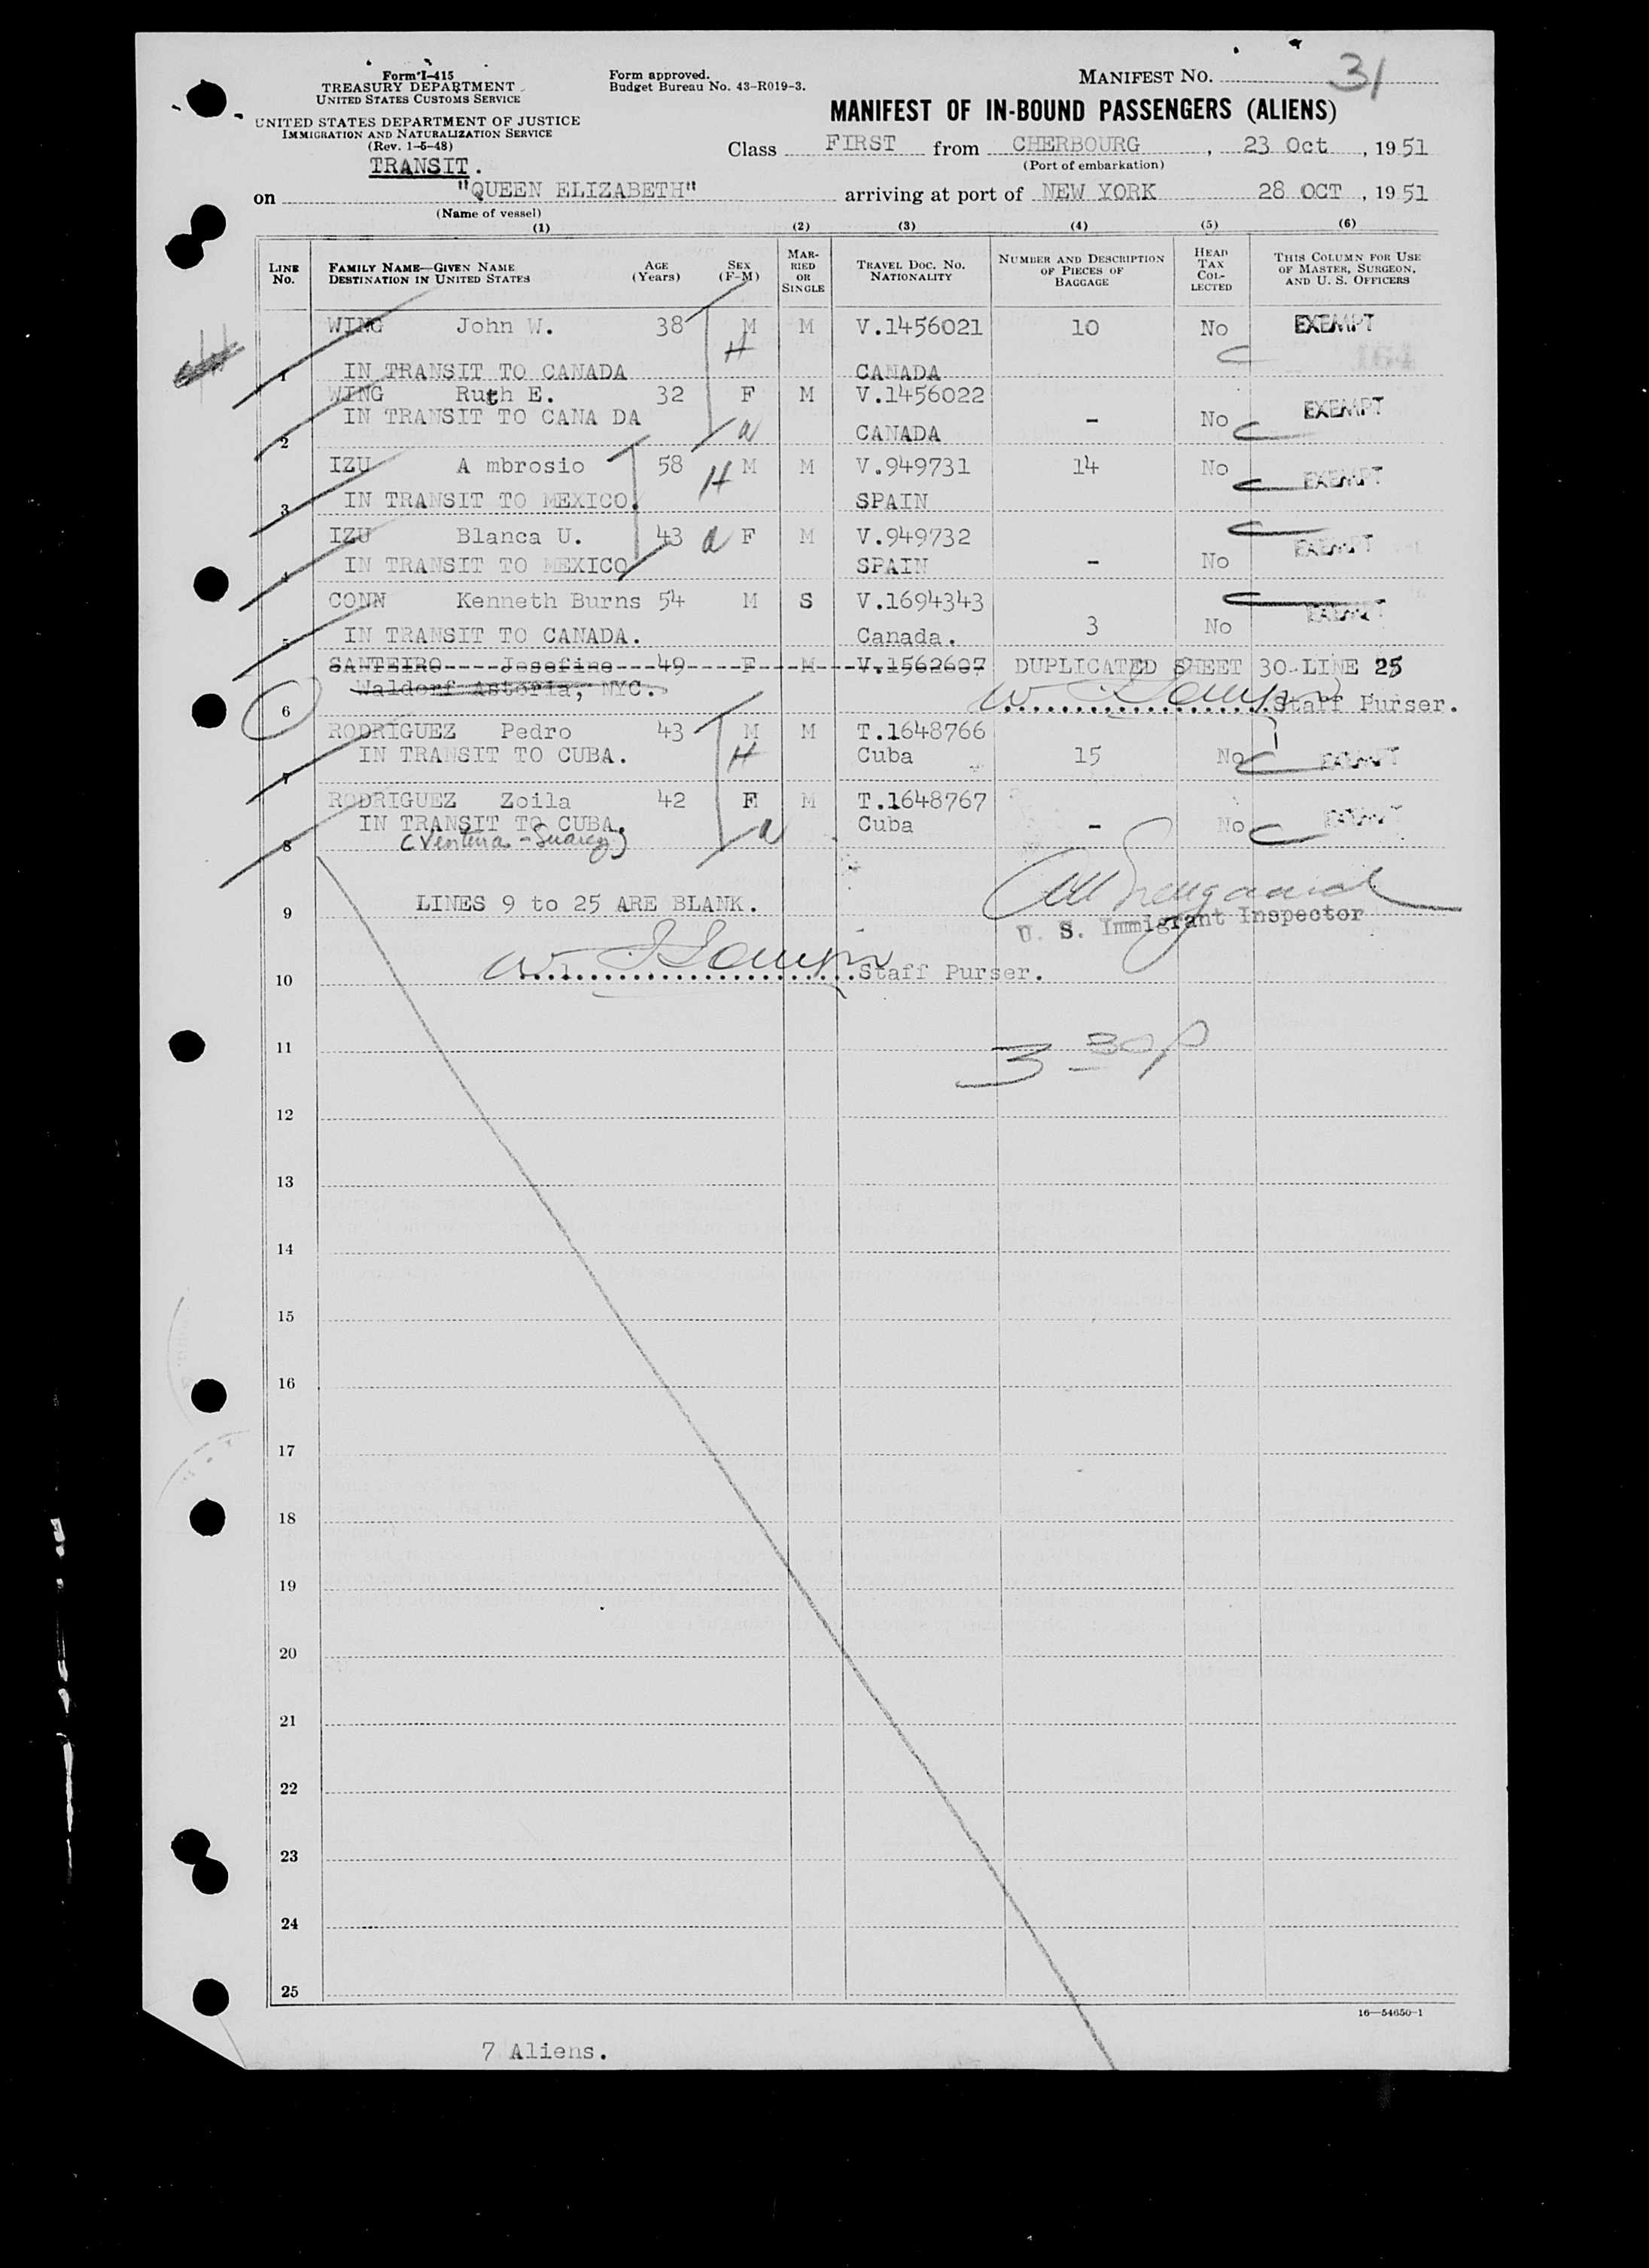 Form I-415
TREASURY DEPARTMENT
UNITED STATES CUSTOMS SERVICE
UNITED STATES DEPARTMENT OF JUSTICE
IMMIGRATION AND NATURALIZATION SERVICE
(Rev. 1-5-48)
TRANSIT.
Form approved.
Budget Bureau No. 43-R019-3.
MANIFEST NO. 31
MANIFEST OF IN-BOUND PASSENGERS (ALIENS)
Class FIRST from CHERBOURG, 23 Oct, 1951
(Port of embarkation)
on "QUEEN ELIZABETH" arriving at port of NEW YORK 28 OCT, 1951
(Name of vessel)
(1) (2) (3) (4) (5) (6)
LINE No. FAMILY NAME—GIVEN NAME DESTINATION IN UNITED STATES AGE (Years) SEX (F-M) MARRIED OR SINGLE TRAVEL DOC. NO. NATIONALITY NUMBER AND DESCRIPTION OF PIECES OF BAGGAGE HEAD TAX COLLECTED THIS COLUMN FOR USE OF MASTER, SURGEON, AND U. S. OFFICERS
WING John W. 38 M M V.1456021 10 No EXEMPT
H
1 IN TRANSIT TO CANADA CANADA
WING Ruth E. 32 F M V.1456022 EXEMPT
IN TRANSIT TO CANA DA - No
2 CANADA
IZU A mbrosio 58 H M M V.949731 14 No EXEMPT
3 IN TRANSIT TO MEXICO. SPAIN
IZU Blanca U. 43 F M V.949732 EXEMPT
4 IN TRANSIT TO MEXICO SPAIN - No
CONN Kenneth Burns 54 M S V.1694343 EXEMPT
5 IN TRANSIT TO CANADA. Canada. 3 No
SANTEIRO----Josefine---49----F---M---V.1562607 DUPLICATED SHEET 30 LINE 25
Waldorf Astoria, NYC.
6 Staff Purser.
RODRIGUEZ Pedro 43 M M T.1648766
7 IN TRANSIT TO CUBA. H Cuba 15 No EXEMPT
RODRIGUEZ Zoila 42 F M T.1648767
IN TRANSIT TO CUBA. Cuba - No EXEMPT
8
9 LINES 9 to 25 ARE BLANK.
U. S. Immigrant Inspector
10 Staff Purser.
11 3 30 p
12
13
14
15
16
17
18
19
20
21
22
23
24
25
16—54650-1
7 Aliens.